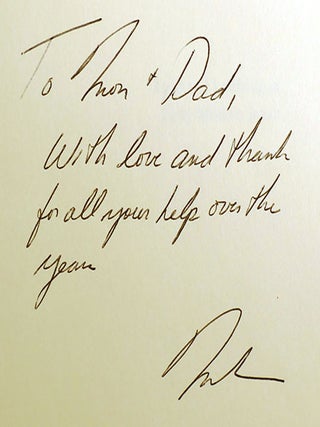 To Mom + Dad,
With love and thanks
for all your help over the
years